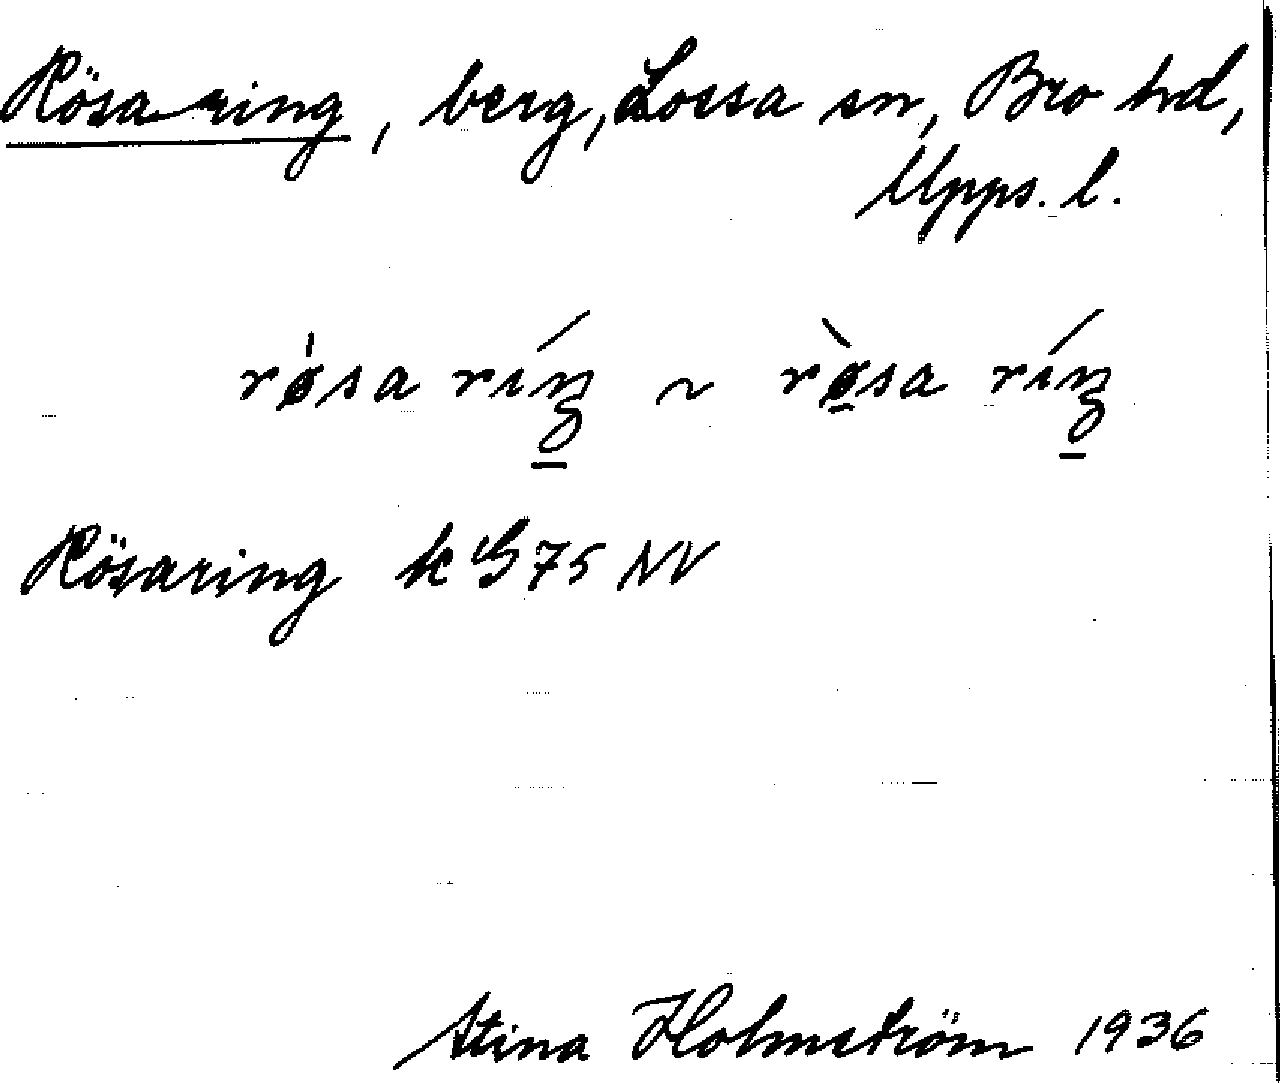 Rösa ring, berg, Lossa sn, Bro hd,
Upps. l.
rǿsa ríŋ ~ rø̀sa ríŋ
Rösaring k G 75 NV
Stina Holmström 1936